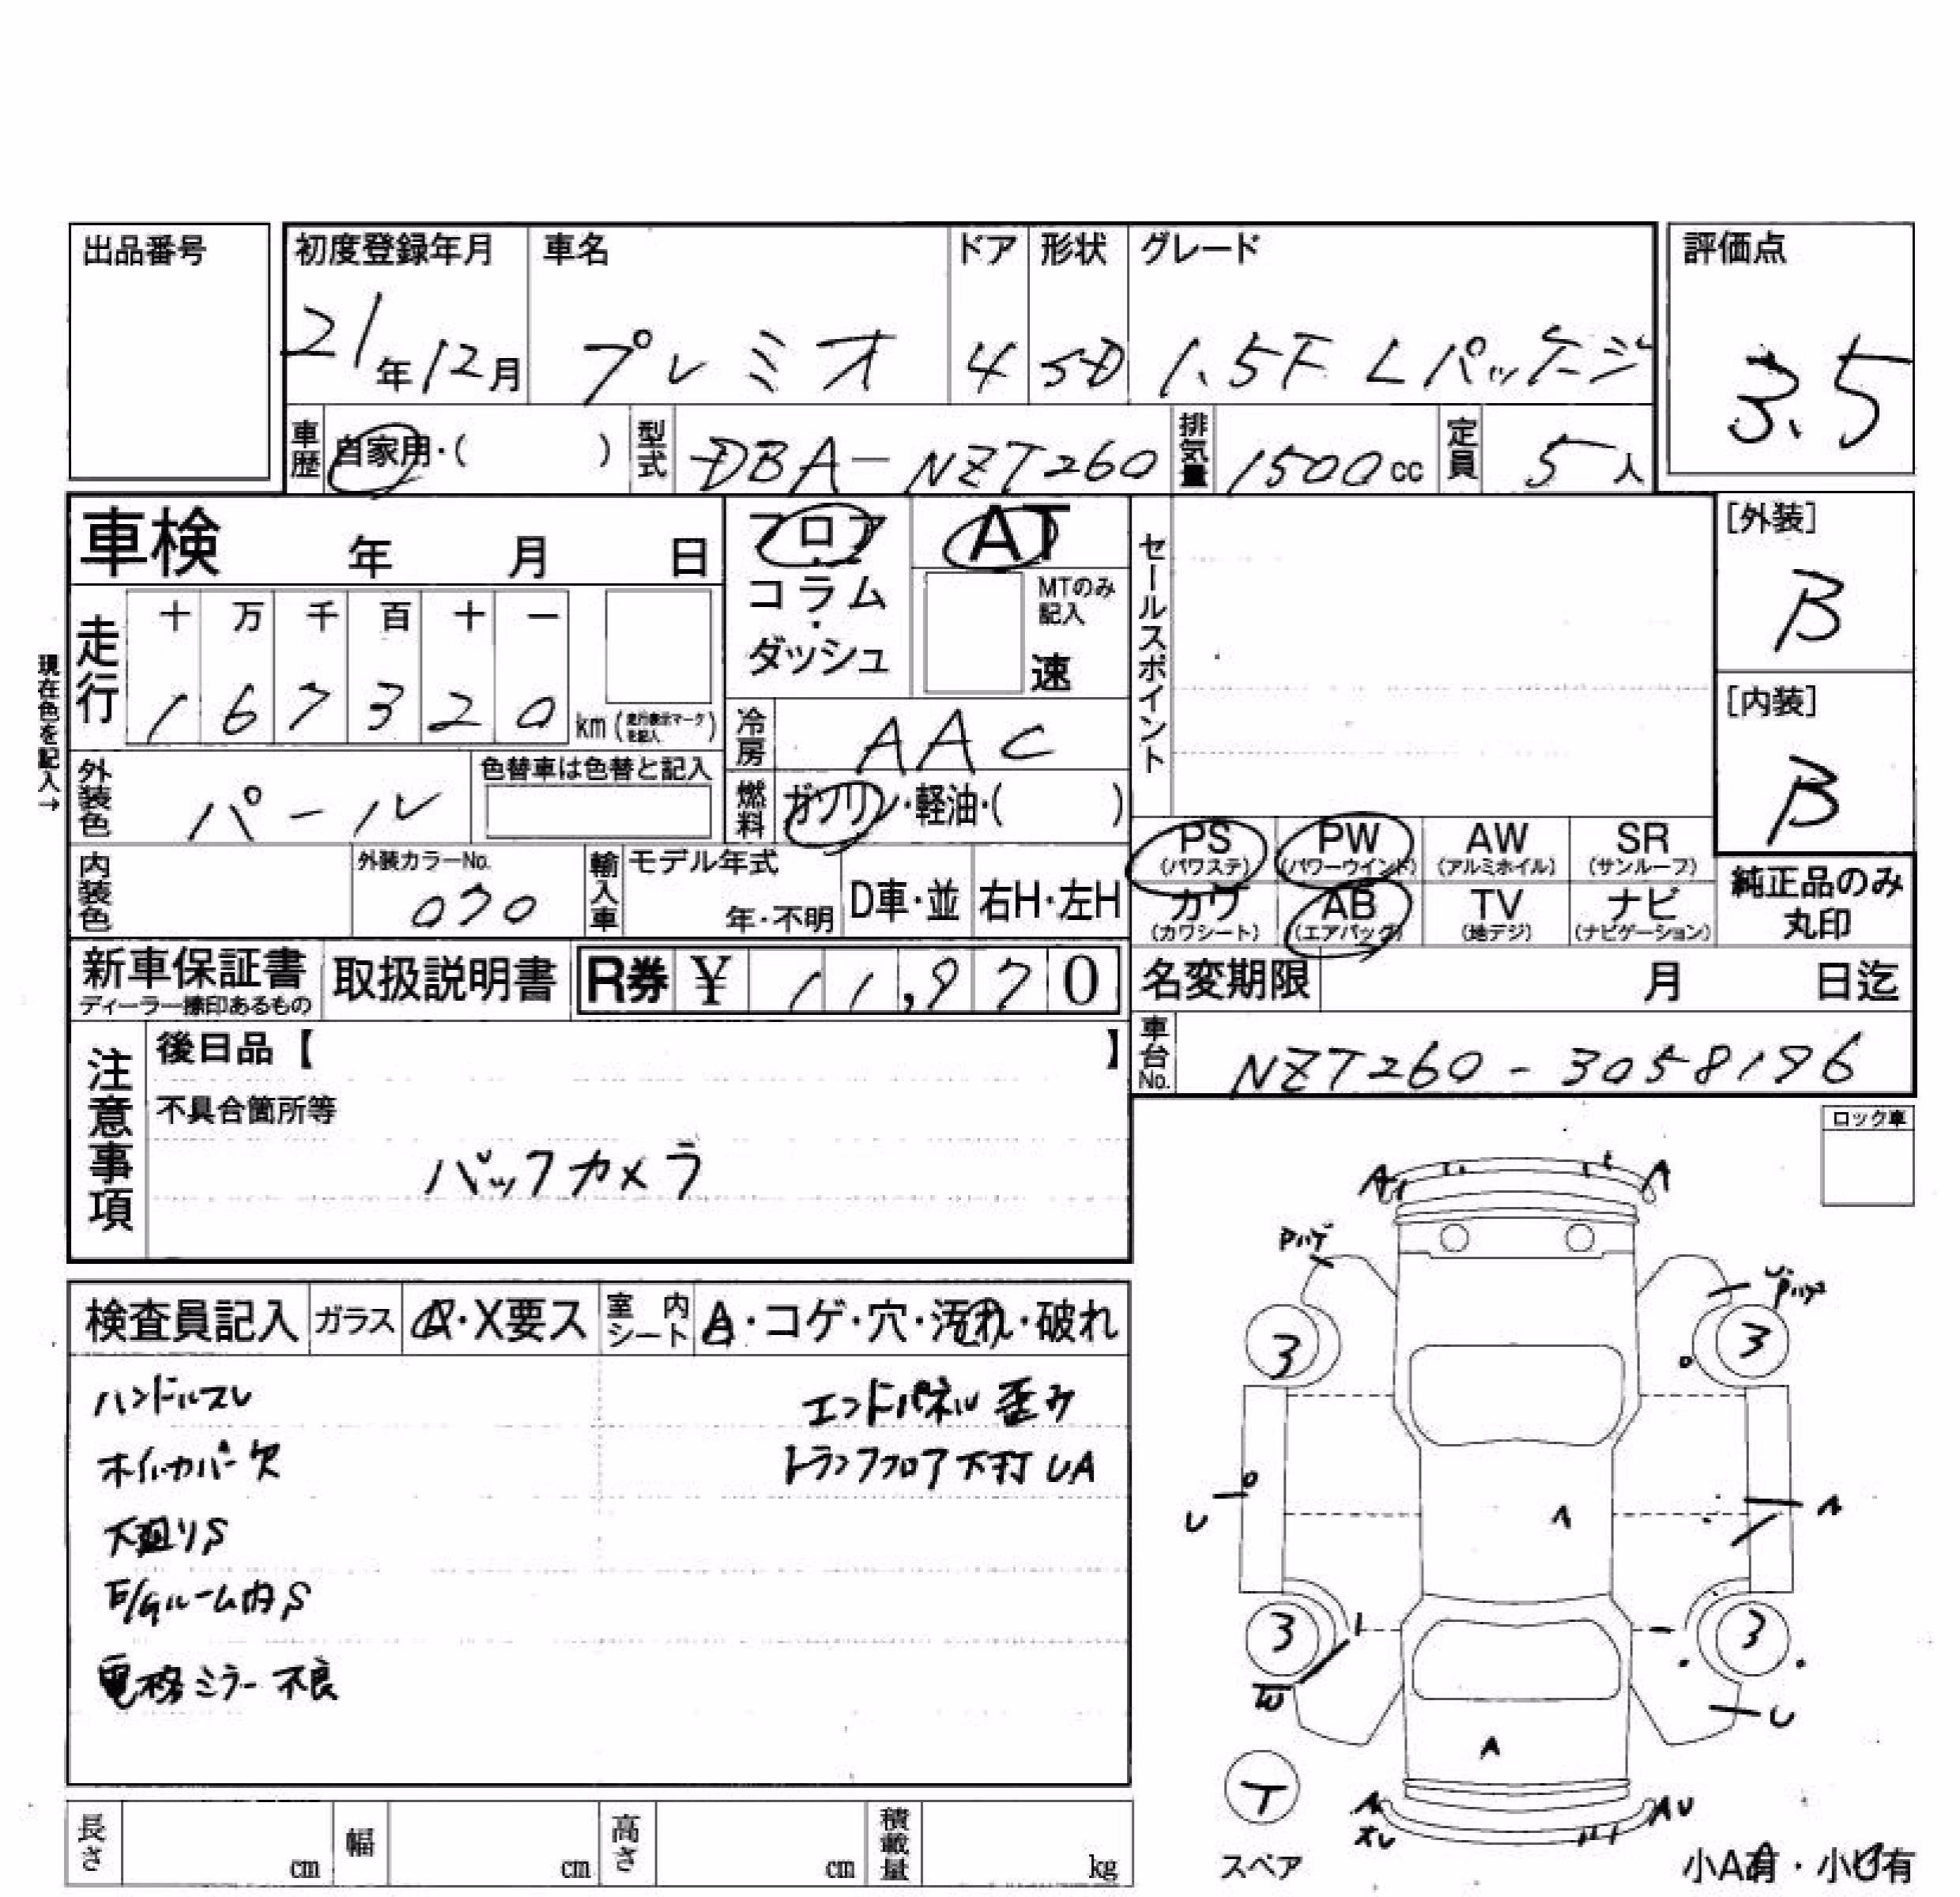 出品番号
初度登録年月 車名 ドア 形状 グレード 評価点
21年12月 プレミオ 4 SD 1.5F Lパッケージ 3.5
車歴 自家用・( ) 型式 DBA-NZT260 排気量 1500cc 定員 5人
車検 年 月 日
フロア・コラム・ダッシュ
AT
MTのみ記入
速
セールスポイント
[外装]
B
[内装]
B
現在色を記入→
走行 十 万 千 百 十 一
1 6 7 3 2 0 km (走行表示マークを記入)
冷房 AAC
外装色 パール 色替車は色替と記入
燃料 ガソリン・軽油・( )
PS (パワステ) PW (パワーウインド) AW (アルミホイル) SR (サンルーフ)
カワ (カワシート) AB (エアバッグ) TV (地デジ) ナビ (ナビゲーション)
純正品のみ丸印
内装色 外装カラーNo. 070 輸入車 モデル年式 年・不明 D車・並 右H・左H
新車保証書 ディーラー捺印あるもの 取扱説明書 R券 ¥ 11,970
名変期限 月 日迄
車台No. NZT260-3058196
注意事項
後日品【 】
不具合箇所等
バックカメラ
ロック車
検査員記入 ガラス A・X要ス 室内シート A・コゲ・穴・汚れ・破れ
ハンドルスレ エンドパネル歪み
ホイルカバー欠 トランクフロア下打UA
下廻りS
E/Gルーム内S
電格ミラー不良
A A
Pハゲ U Pハゲ
3 3
U A A
3 3
W U
A
T
スペア
A AU
小A有・小U有
長さ cm 幅 cm 高さ cm 積載量 kg